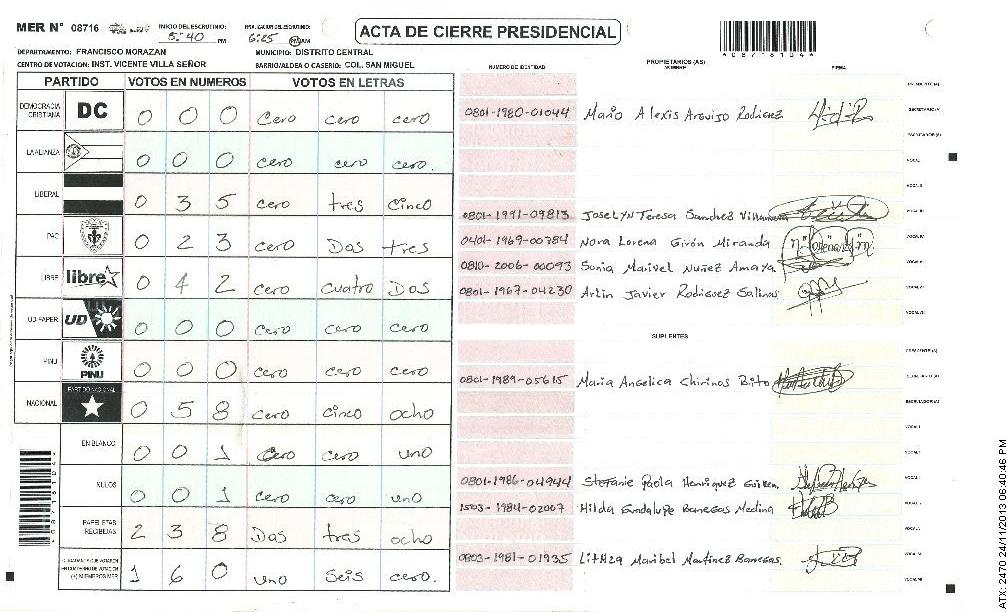 MER Nº 08716 INICIO DEL ESCRUTINIO: 5:40 PM FINALIZACION DEL ESCRUTINIO: 6:25 PM AM
ACTA DE CIERRE PRESIDENCIAL
DEPARTAMENTO: FRANCISCO MORAZAN MUNICIPIO: DISTRITO CENTRAL
CENTRO DE VOTACION: INST. VICENTE VILLA SEÑOR BARRIO/ALDEA O CASERIO: COL. SAN MIGUEL
PARTIDO VOTOS EN NUMEROS VOTOS EN LETRAS
DEMOCRACIA CRISTIANA DC 0 0 0 cero cero cero
LA ALIANZA 0 0 0 cero cero cero.
LIBERAL 0 3 5 cero tres cinco
PAC 0 2 3 cero Dos tres
LIBRE libre 0 4 2 cero cuatro Dos
UD-FAPER UD 0 0 0 cero cero cero
PINU PINU 0 0 0 cero cero cero
NACIONAL PARTIDO NACIONAL 0 5 8 cero cinco ocho
EN BLANCO 0 0 1 cero cero uno
NULOS 0 0 1 cero cero uno
PAPELETAS RECIBIDAS 2 3 8 Dos tres ocho
(+) MIEMBROS MER 1 6 0 uno seis cero.
NUMERO DE IDENTIDAD PROPIETARIOS (AS) NOMBRE FIRMA
PRESIDENTE (A)
0801-1980-01044 Mario Alexis Arguijo Rodriguez SECRETARIO (A)
ESCRUTADOR (A)
VOCAL I
VOCAL II
0801-1991-09813 Joselyn Teresa Sanchez Villanueva VOCAL III
0401-1969-00784 Nora Lorena Girón Miranda VOCAL IV
0810-2006-00093 Sonia Marivel Nuñez Amaya VOCAL V
0801-1967-04230 Arlin Javier Rodriguez Salinas VOCAL VI
VOCAL VII
SUPLENTES
PRESIDENTE (A)
0801-1989-05615 Maria Angelica Chirinos Brito SECRETARIO (A)
ESCRUTADOR (A)
VOCAL I
VOCAL II
0801-1986-04944 Stefanie Paola Henriquez VOCAL III
1503-1984-02007 Hilda Guadalupe Banegas Medina VOCAL IV
VOCAL V
0803-1981-01935 LitHza Maribel Martinez Banegas. VOCAL VI
VOCAL VII
ATX: 2470 24/11/2013 06:40:46 PM